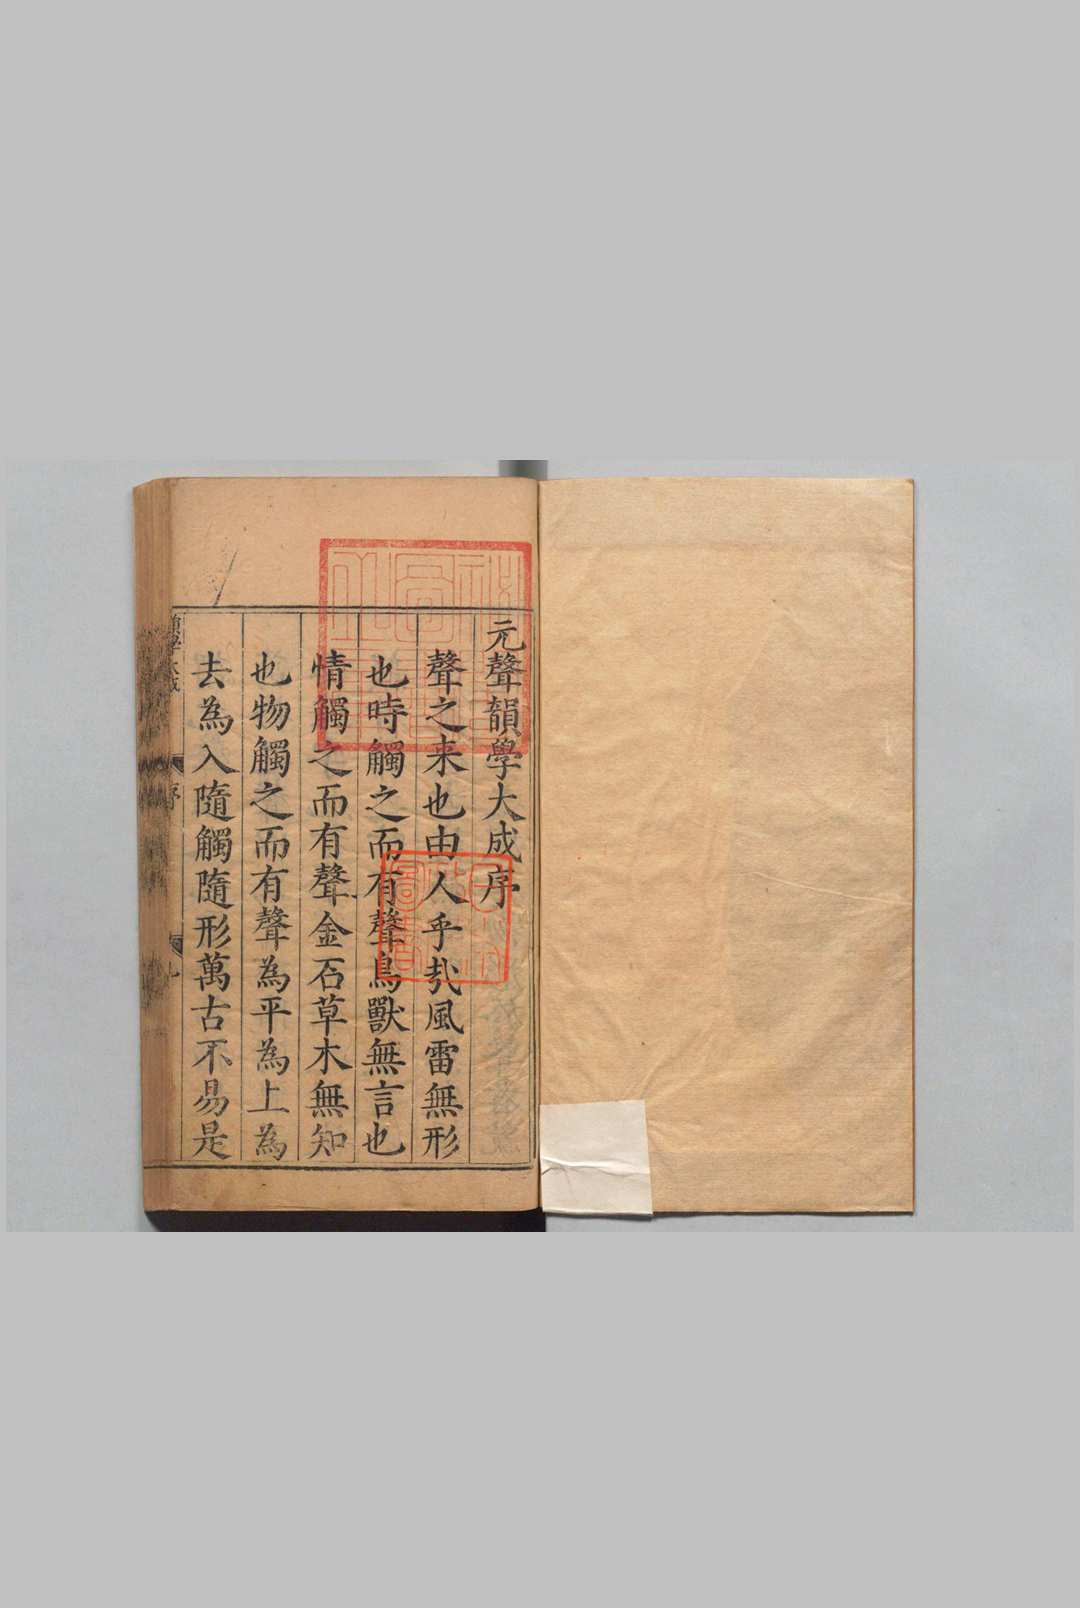 元聲韻學大成序
聲之来也由人乎㢤風雷無形
也時觸之而有聲鳥獸無言也
情觸之而有聲金石草木無知
也物觸之而有聲為平為上為
去為入隨觸隨形萬古不易是
韻學大成
序